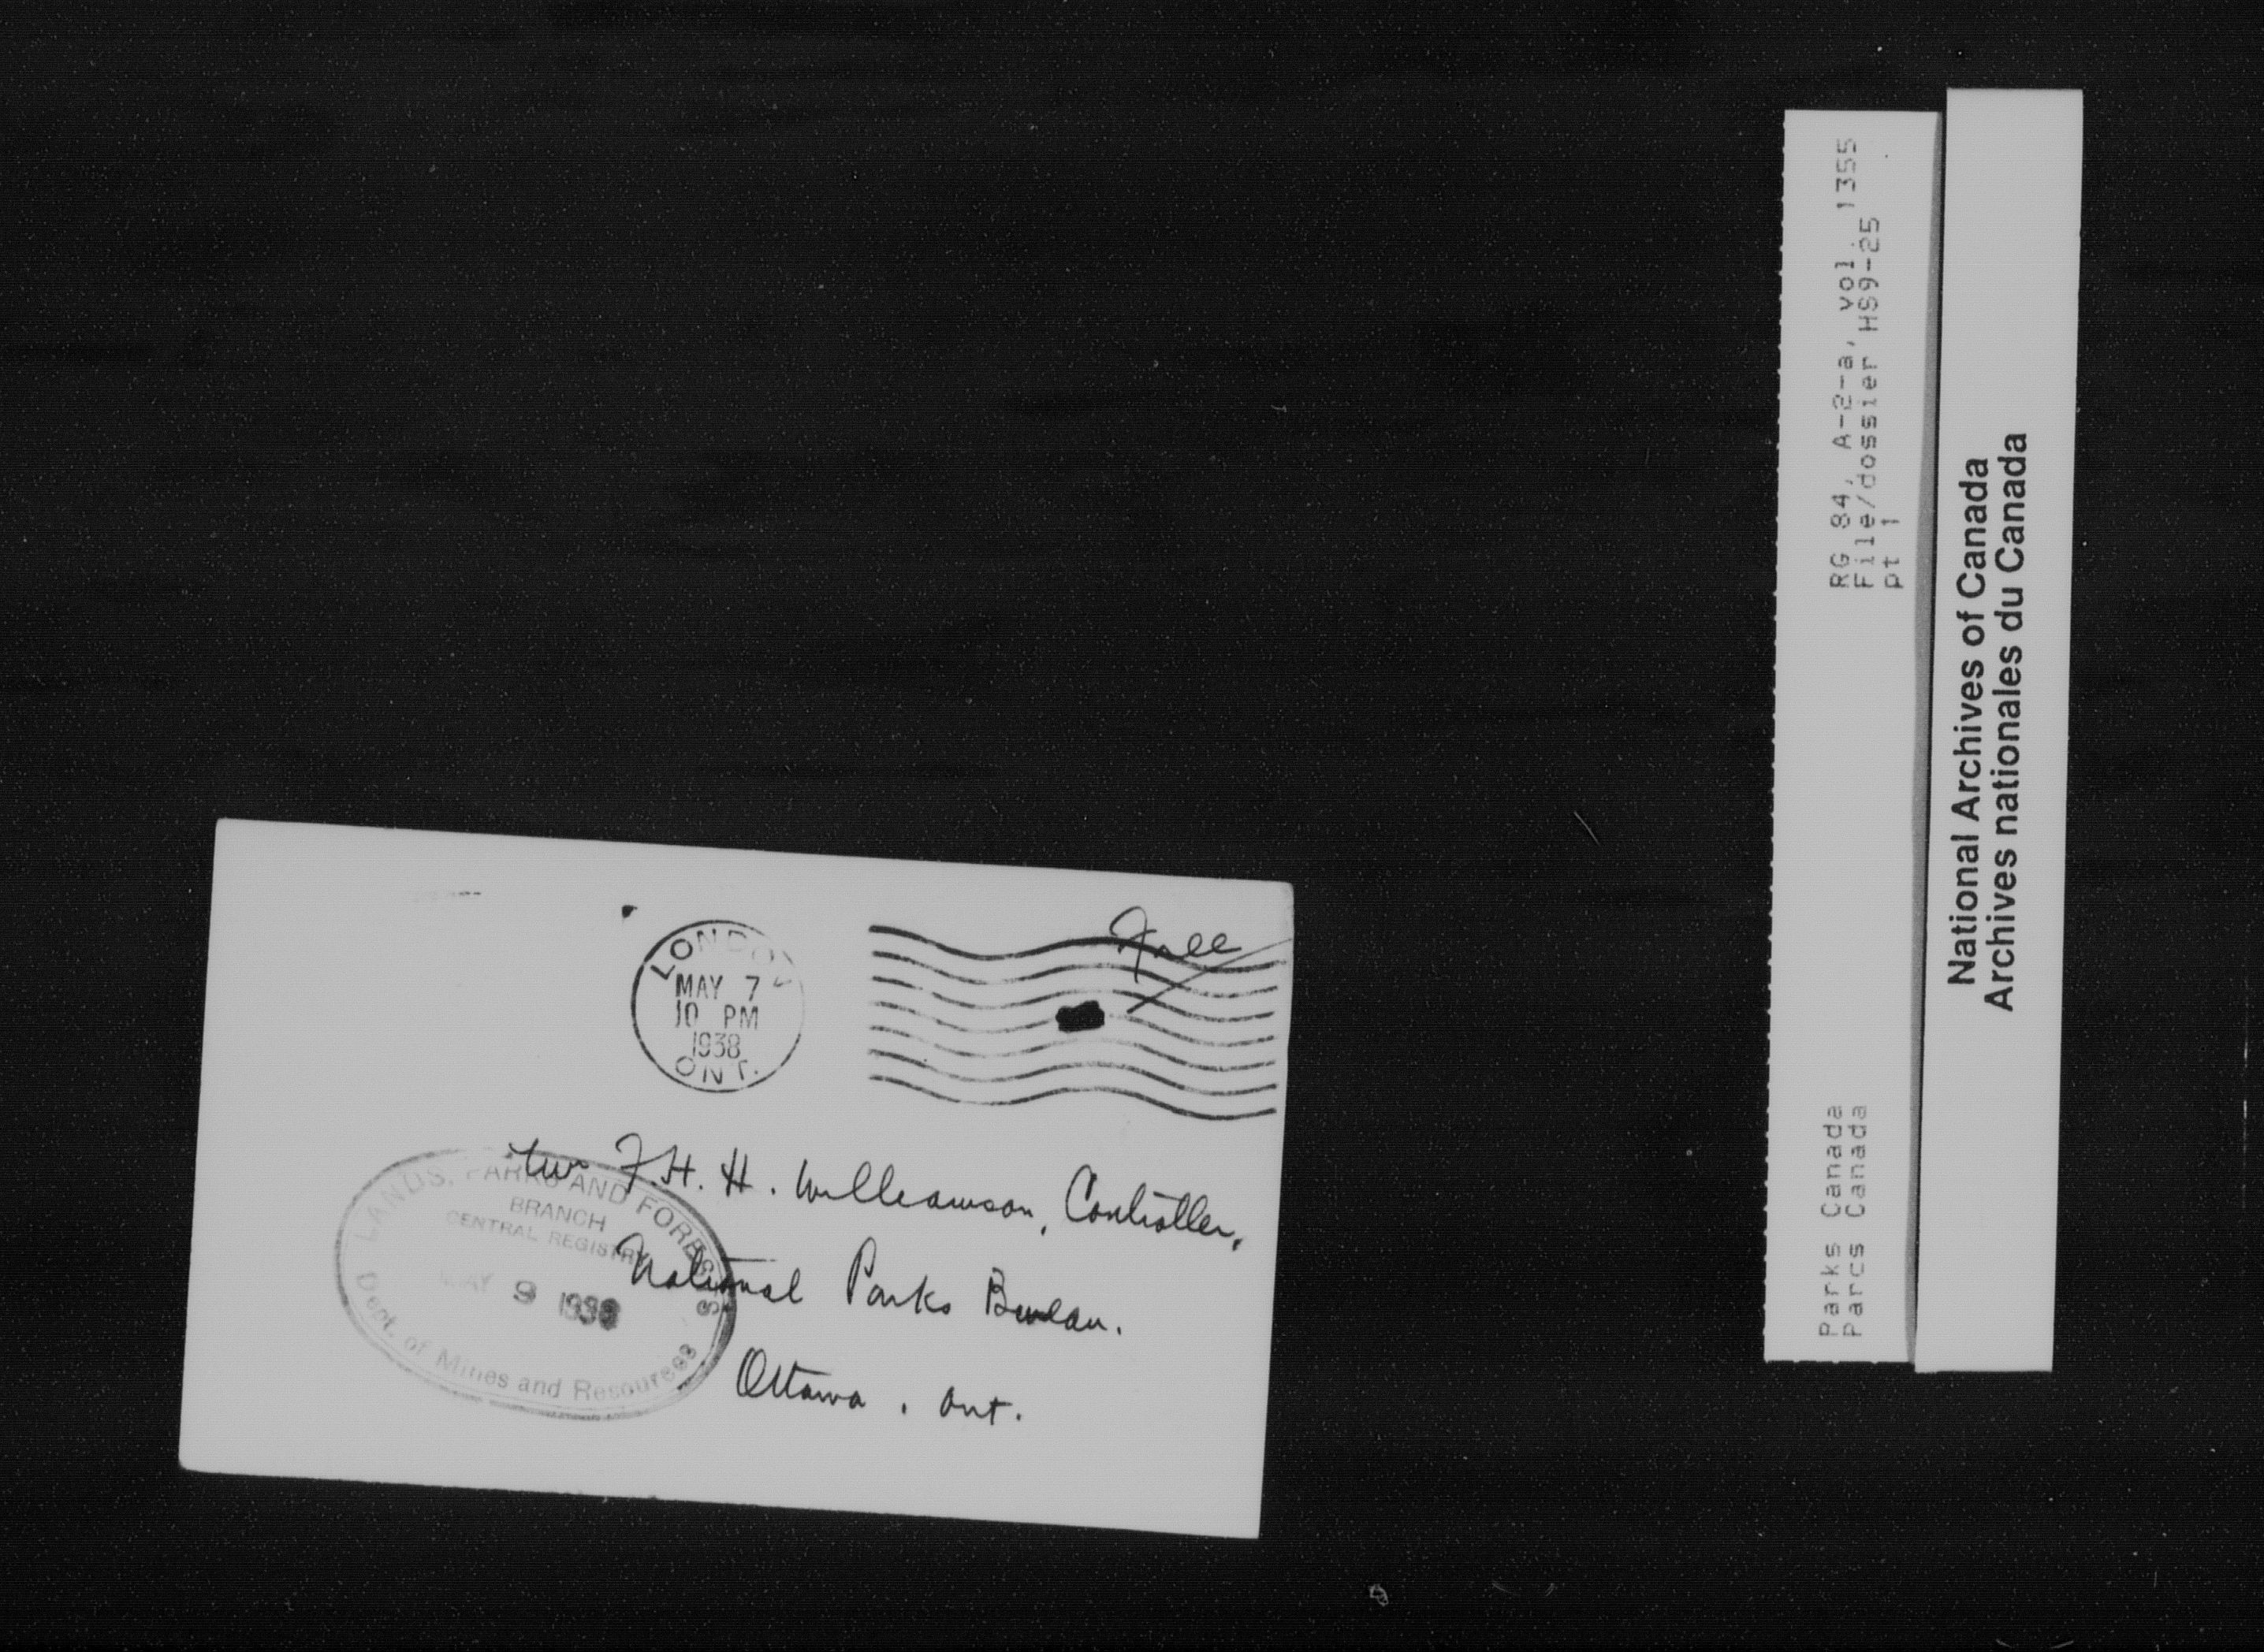 Free
LONDON
MAY 7
10 PM
1938
ONT.
F.H.H. Williamson, Controller,
National Parks Bureau.
Ottawa. Ont.
LANDS, PARKS AND FORESTS
BRANCH
CENTRAL REGISTRY
MAY 9 1938
Dept. of Mines and Resources
RG 84, A-2-a, vol. 1355
File/dossier HS9-25
pt 1
Parks Canada
Parcs Canada
National Archives of Canada
Archives nationales du Canada